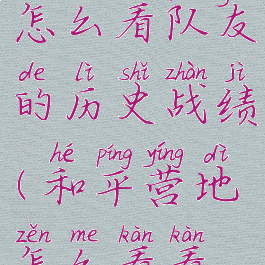 怎么看队友
de lì shǐ zhàn jì
的历史战绩
hé píng yíng dì
(和平营地
zěn me kàn kàn
怎么看看